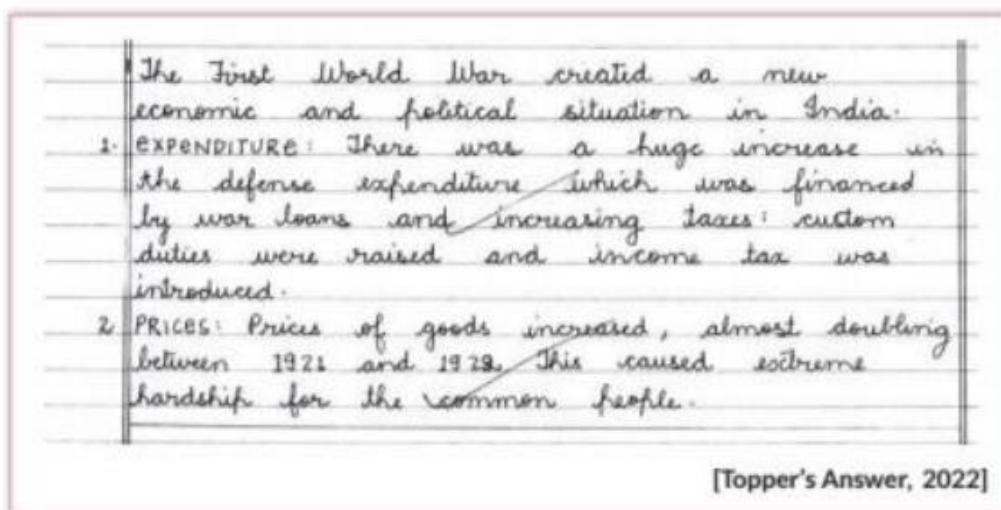 The First World War created a new
economic and political situation in India.
1. EXPENDITURE: There was a huge increase in
the defense expenditure which was financed
by war loans and increasing taxes: custom
duties were raised and income tax was
introduced.
2 PRICES: Prices of goods increased, almost doubling
between 1921 and 1922 This caused extreme
hardship for the common people.
[Topper's Answer, 2022]